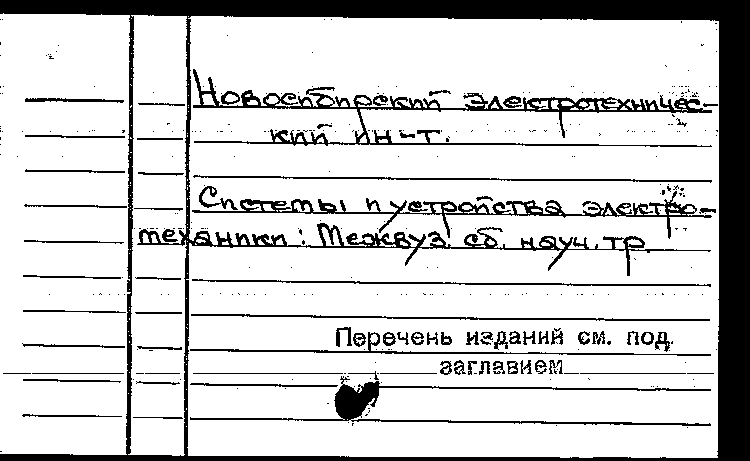 Новосибирский электротехничес-
кий ин-т.
Системы и устройства электро-
механики: Межвуз. сб. науч. тр.
Перечень изданий см. под
заглавием